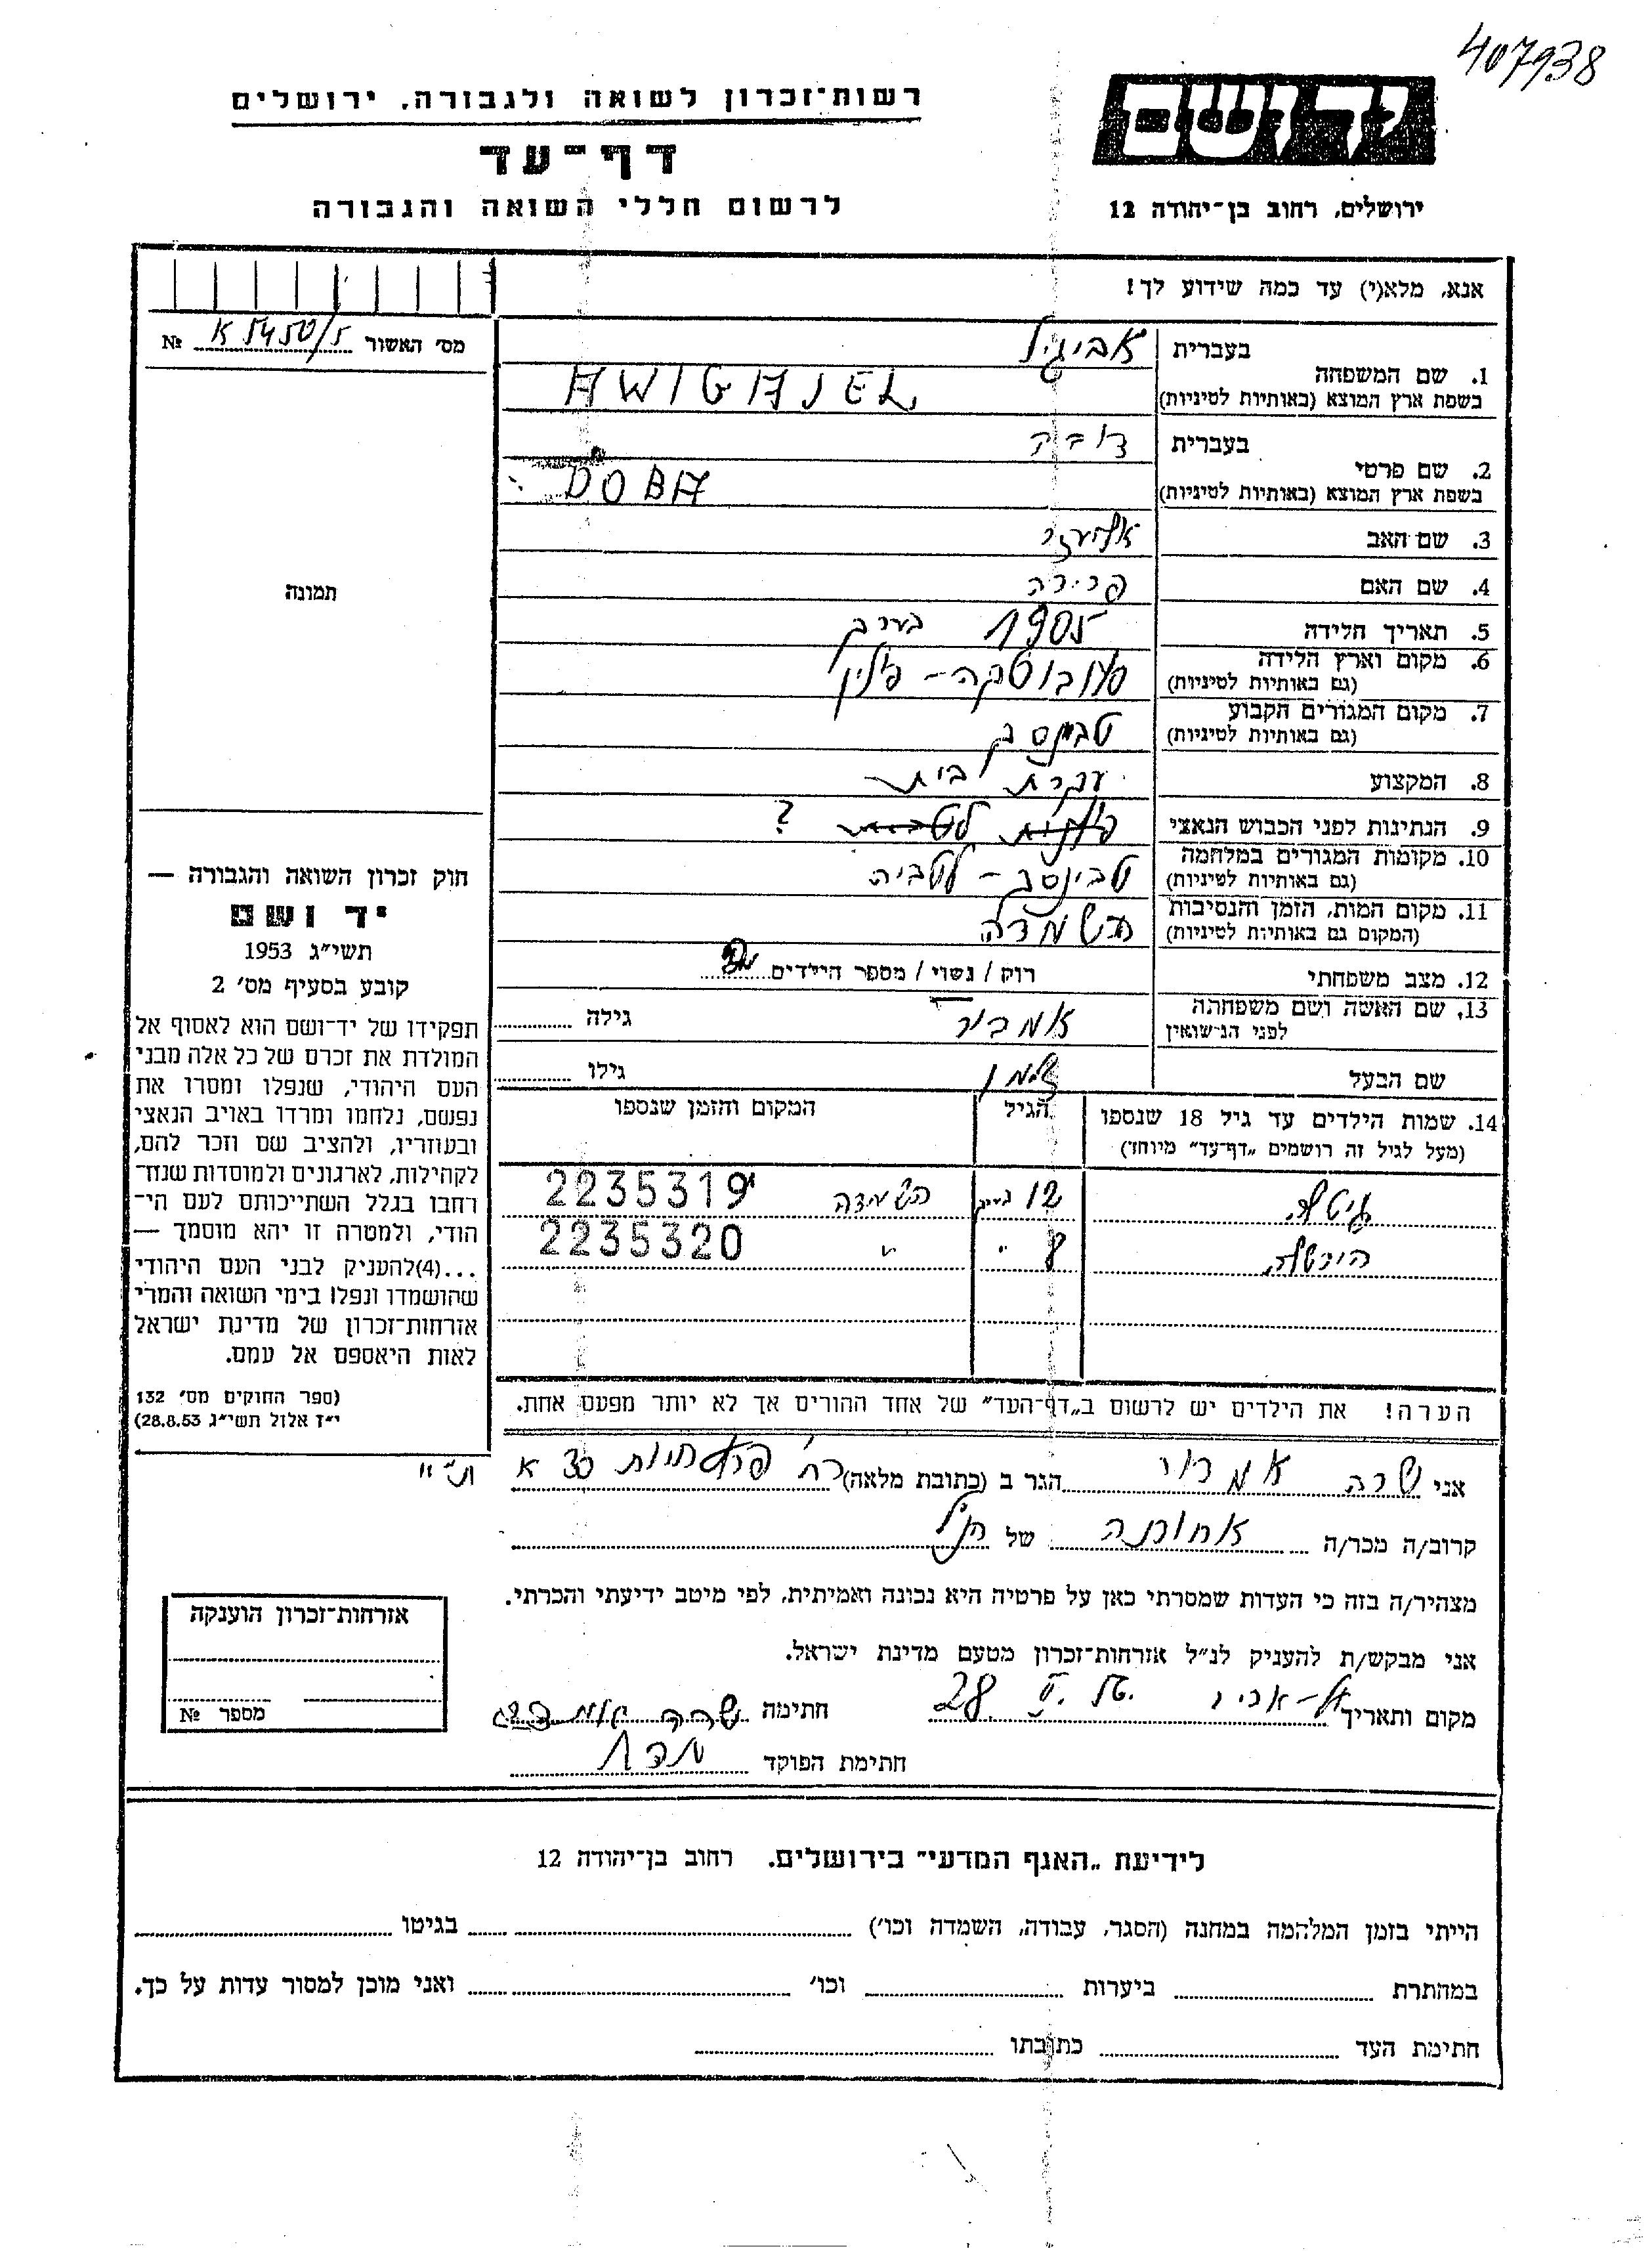 407938
יד ושם
רשות־זכרון לשואה ולגבורה, ירושלים
דף־עד
לרשום חללי השואה והגבורה
ירושלים, רחוב בן־יהודה 12
אנא, מלא(י) עד כמה שידוע לך!
מס׳ האשור K 5450/5 №
1. שם המשפחה
בעברית אביגיל
בשפת ארץ המוצא (באותיות לטיניות) AWIGAJEL
2. שם פרטי
בעברית דובה
בשפת ארץ המוצא (באותיות לטיניות) DOBA
3. שם האב אליעזר
4. שם האם פרידה
5. תאריך חלידה 1905 בערך
6. מקום וארץ הלידה
(גם באותיות לטיניות) פולין
7. מקום המגורים הקבוע
(גם באותיות לטיניות) טבינסק
8. המקצוע עקרת בית
9. הנתינות לפני הכבוש הנאצי ?
10. מקומות המגורים במלחמה
(גם באותיות לטיניות) טבינסק – לטביה
11. מקום המות, הזמן והנסיבות
(המקום גם באותיות לטיניות) השמדה
12. מצב משפחתי רוק / נשוי / מספר הילדים
13. שם האשה ושם משפחתה
לפני הנישואין גילה
שם הבעל זלמן גילו
14. שמות הילדים עד גיל 18 שנספו הגיל המקום והזמן שנספו
(מעל לגיל זה רושמים „דף־עד״ מיוחד)
גיטלה 12 השמדה 2235319
הירשלה 8 " " 2235320
הערה! את הילדים יש לרשום ב„דף־העד״ של אחד ההורים אך לא יותר מפעם אחת.
תמונה
חוק זכרון השואה והגבורה —
יד ושם
תשי״ג 1953
קובע בסעיף מס׳ 2
תפקידו של יד־ושם הוא לאסוף אל
המולדת את זכרם של כל אלה מבני
העם היהודי, שנפלו ומסרו את
נפשם, נלחמו ומרדו באויב הנאצי
ובעוזריו, ולהציב שם וזכר להם,
לקהילות, לארגונים ולמוסדות שנח־
רבו בגלל השתייכותם לעם הי־
הודי, ולמטרה זו יהא מוסמך —
...(4)להעניק לבני העם היהודי
שהושמדו ונפלו בימי השואה והמרי
אזרחות־זכרון של מדינת ישראל
לאות היאספם אל עמם.
(ספר החוקים מס׳ 132
י״ז אלול תשי״ג 28.8.53)
אני שרה הגר ב (כתובת מלאה) רח׳ 30 א ת״א
קרוב/ה מכר/ה אחותה של הנ״ל
מצהיר/ה בזה כי העדות שמסרתי כאן על פרטיה היא נכונה ואמיתית, לפי מיטב ידיעתי והכרתי.
אני מבקש/ת להעניק לנ״ל אזרחות־זכרון מטעם מדינת ישראל.
מקום ותאריך תל-אביב 28 חתימה שרה
חתימת הפוקד
אזרחות־זכרון הוענקה
מספר №
לידיעת „האגף המדעי״ בירושלים, רחוב בן־יהודה 12
הייתי בזמן המלהמה במחנה (הסגר, עבודה, השמדה וכו׳) בגיטו
במהתרת ביערות וכו׳ ואני מוכן למסור עדות על כך.
חתימת העד כתובתו